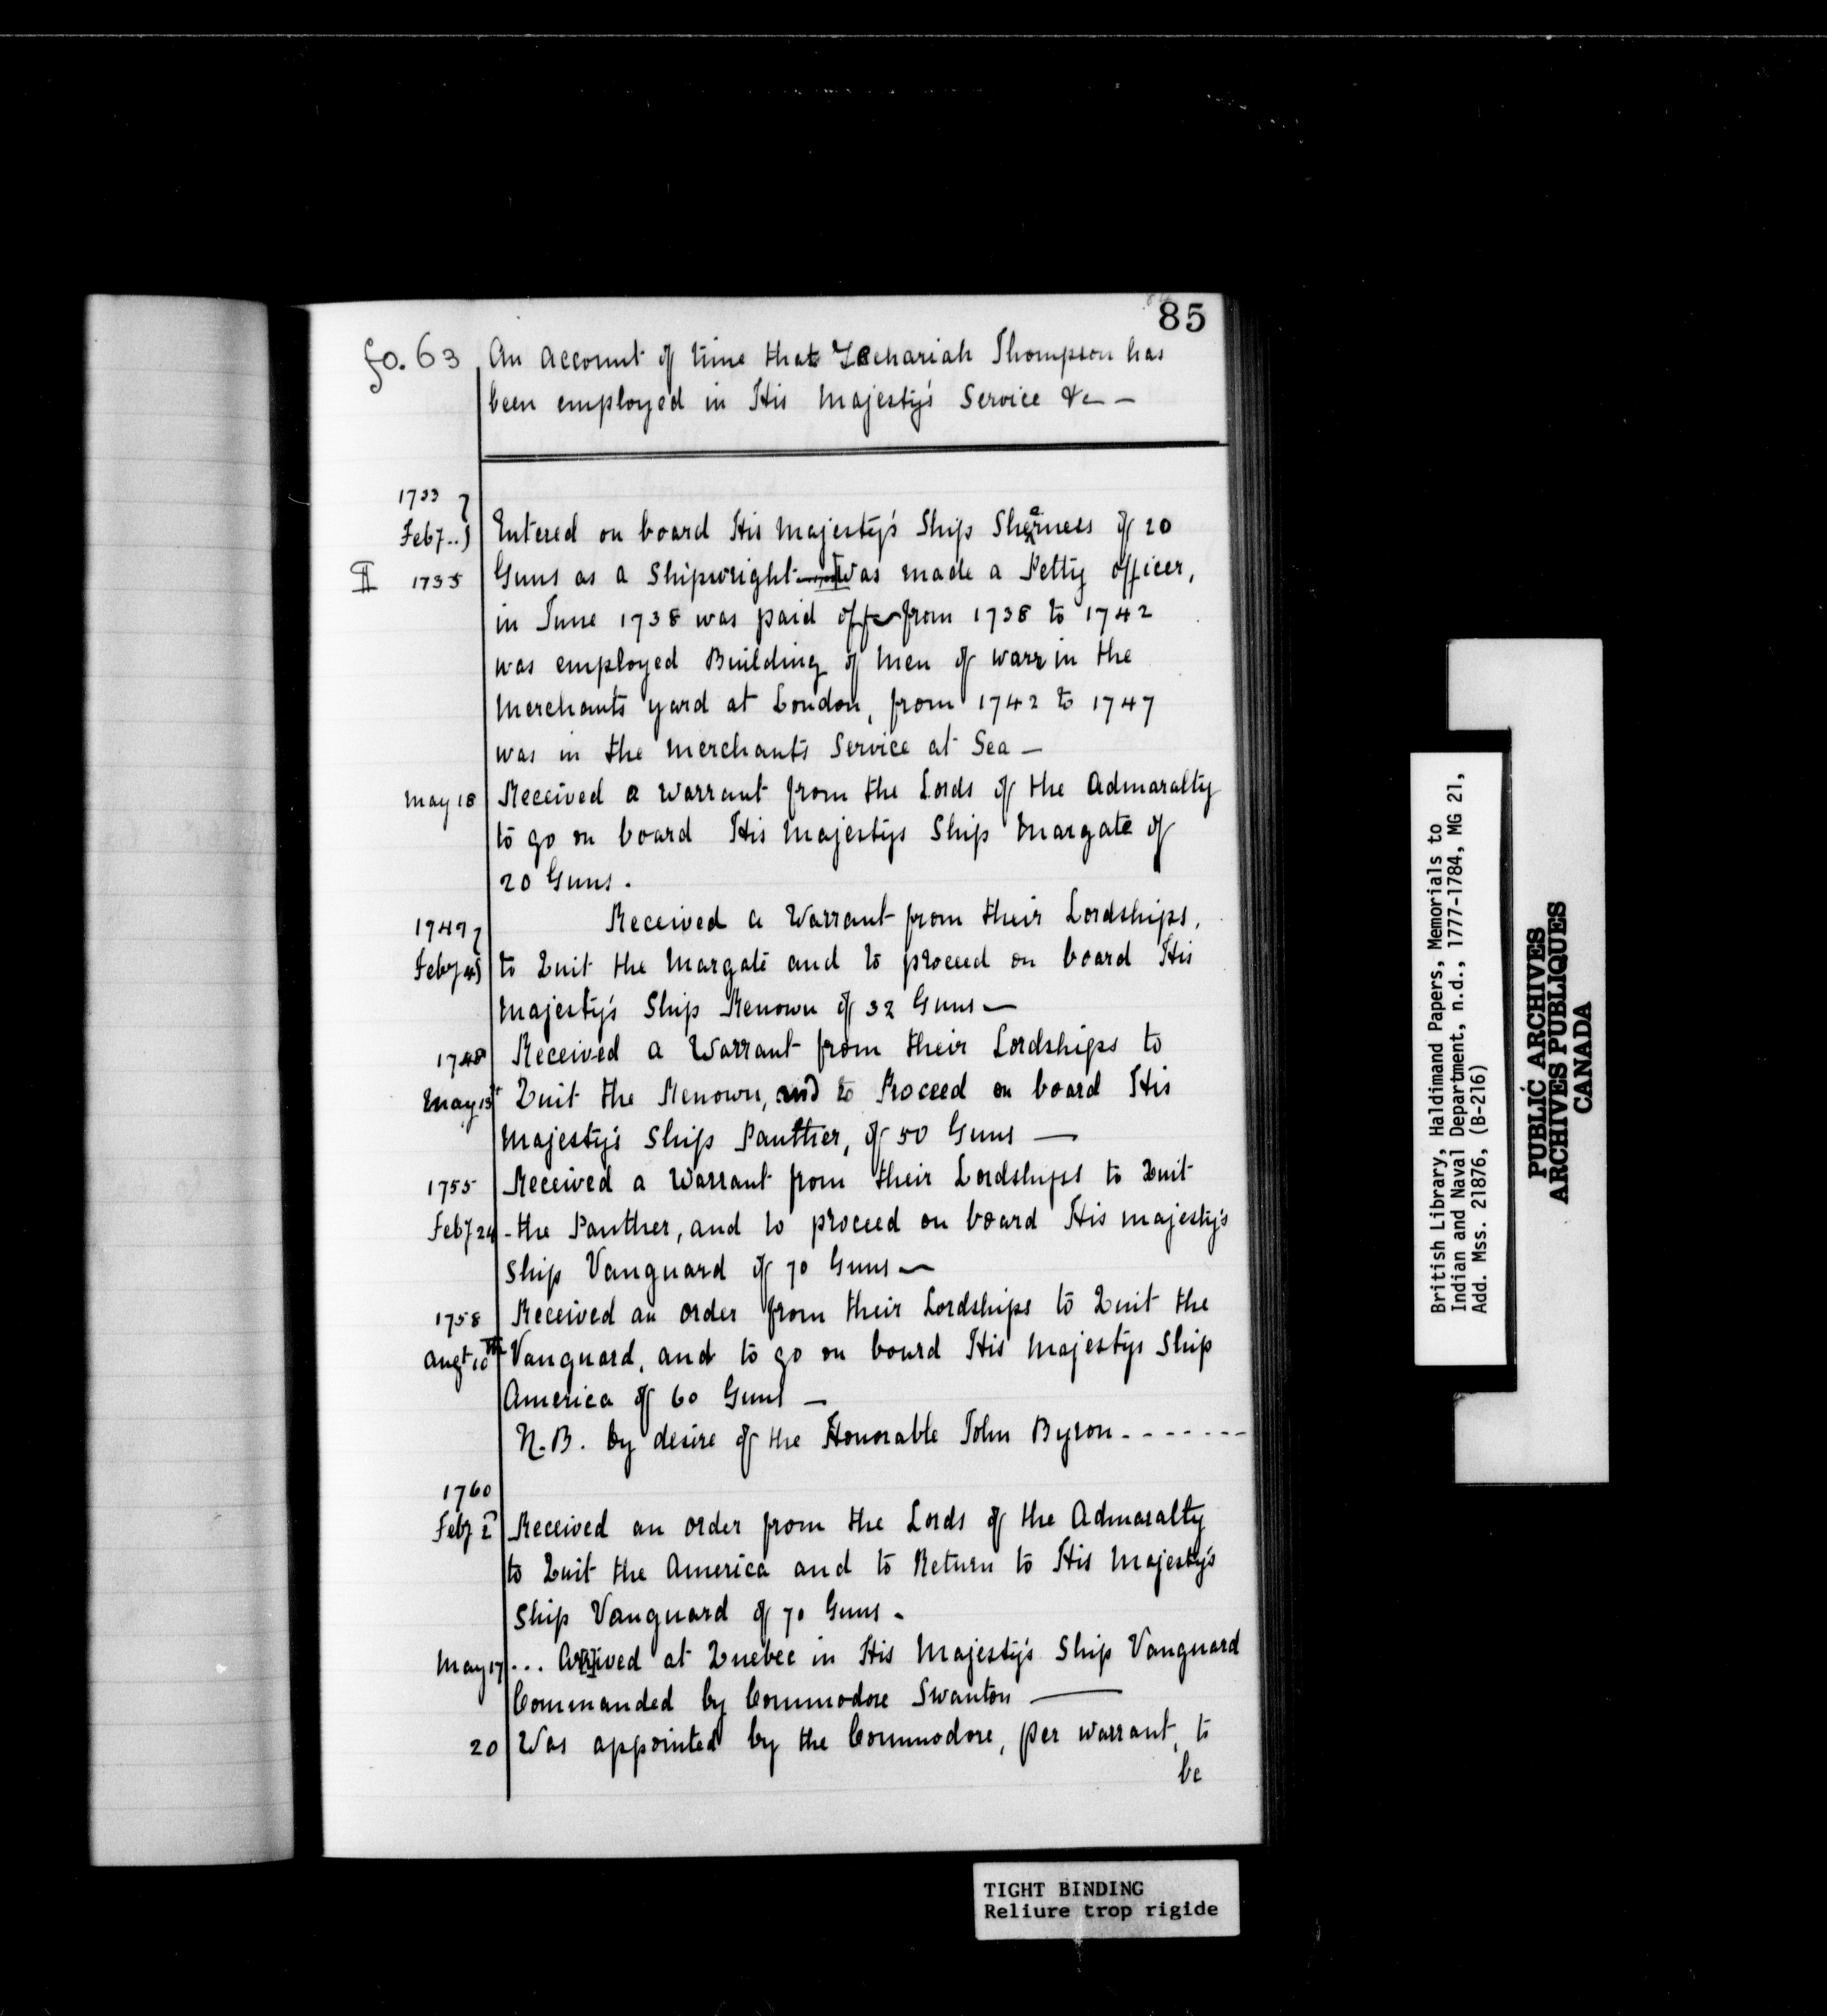 85
fo. 63 An account of time that Zachariah Thompson has
been employed in His Majesty's Service &c —
1733
Feby .. Entered on board His Majesty's Ship Sheerness of 20
1735 Guns as a Shipwright was made a Petty officer,
in June 1738 was paid off from 1738 to 1742
was employed Building of Men of warr in the
Merchants yard at London, from 1742 to 1747
was in the Merchants Service at Sea —
May 18 Received a Warrant from the Lords of the Admaralty
to go on board His Majestys Ship Margate of
20 Guns.
1747 Received a Warrant from their Lordships,
Feby 4 to Quit the Margate and to proceed on board His
Majesty's Ship Renown of 32 Guns —
1748 Received a Warrant from their Lordships to
May 13t Quit the Renown, and to Proceed on board His
Majesty's Ship Panther, of 50 Guns —
1755 Received a Warrant from their Lordships to Quit
Feby 24 - the Panther, and to proceed on board His Majesty's
Ship Vanguard of 70 Guns —
1758 Received an order from their Lordships to Quit the
Augt 10th Vanguard, and to go on board His Majestys Ship
America of 60 Guns —
N.B. by desire of the Honorable John Byron - - - - - - -
1760
Feby 2 Received an order from the Lords of the Admaralty
to Quit the America and to Return to His Majesty's
Ship Vanguard of 70 Guns -
May 17 ... Arrived at Quebec in His Majesty's Ship Vanguard
Commanded by Commodore Swanton —
20 Was appointed by the Commodore, per warrant, to
be
British Library, Haldimand Papers, Memorials to
Indian and Naval Department, n.d., 1777-1784, MG 21,
Add. Mss. 21876, (B-216)
PUBLIC ARCHIVES
ARCHIVES PUBLIQUES
CANADA
TIGHT BINDING
Reliure trop rigide